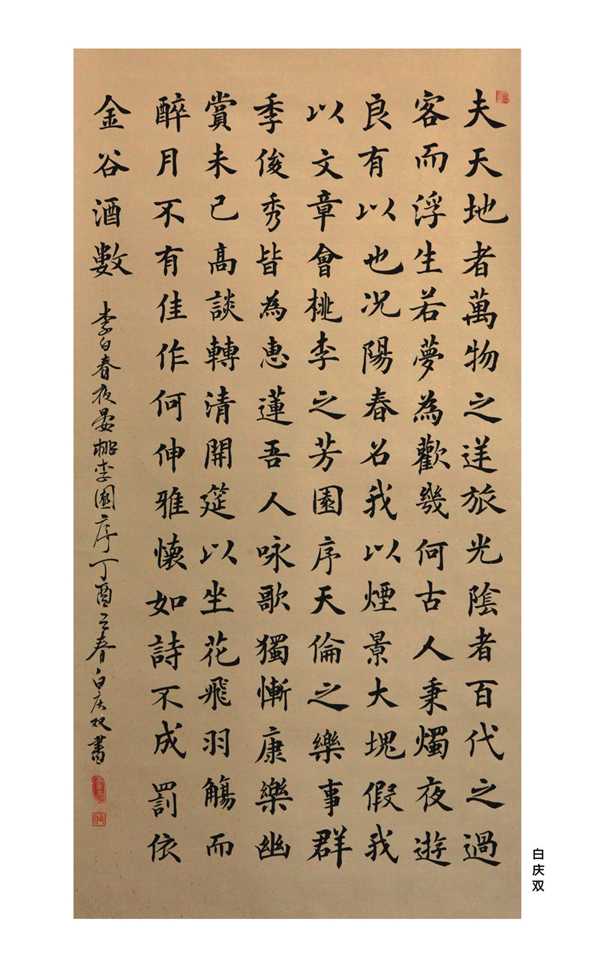 夫天地者萬物之逆旅光陰者百代之過
客而浮生若夢為歡幾何古人秉燭夜遊
良有以也况陽春名我以煙景大塊假我
以文章會桃李之芳園序天倫之樂事群
季俊秀皆為惠蓮吾人咏歌獨慚康樂幽
賞未已高談轉清開筵以坐花飛羽觴而
醉月不有佳作何伸雅懷如詩不成罰依
金谷酒數
李白春夜宴桃李園序丁酉之春白庆双書
白庆双